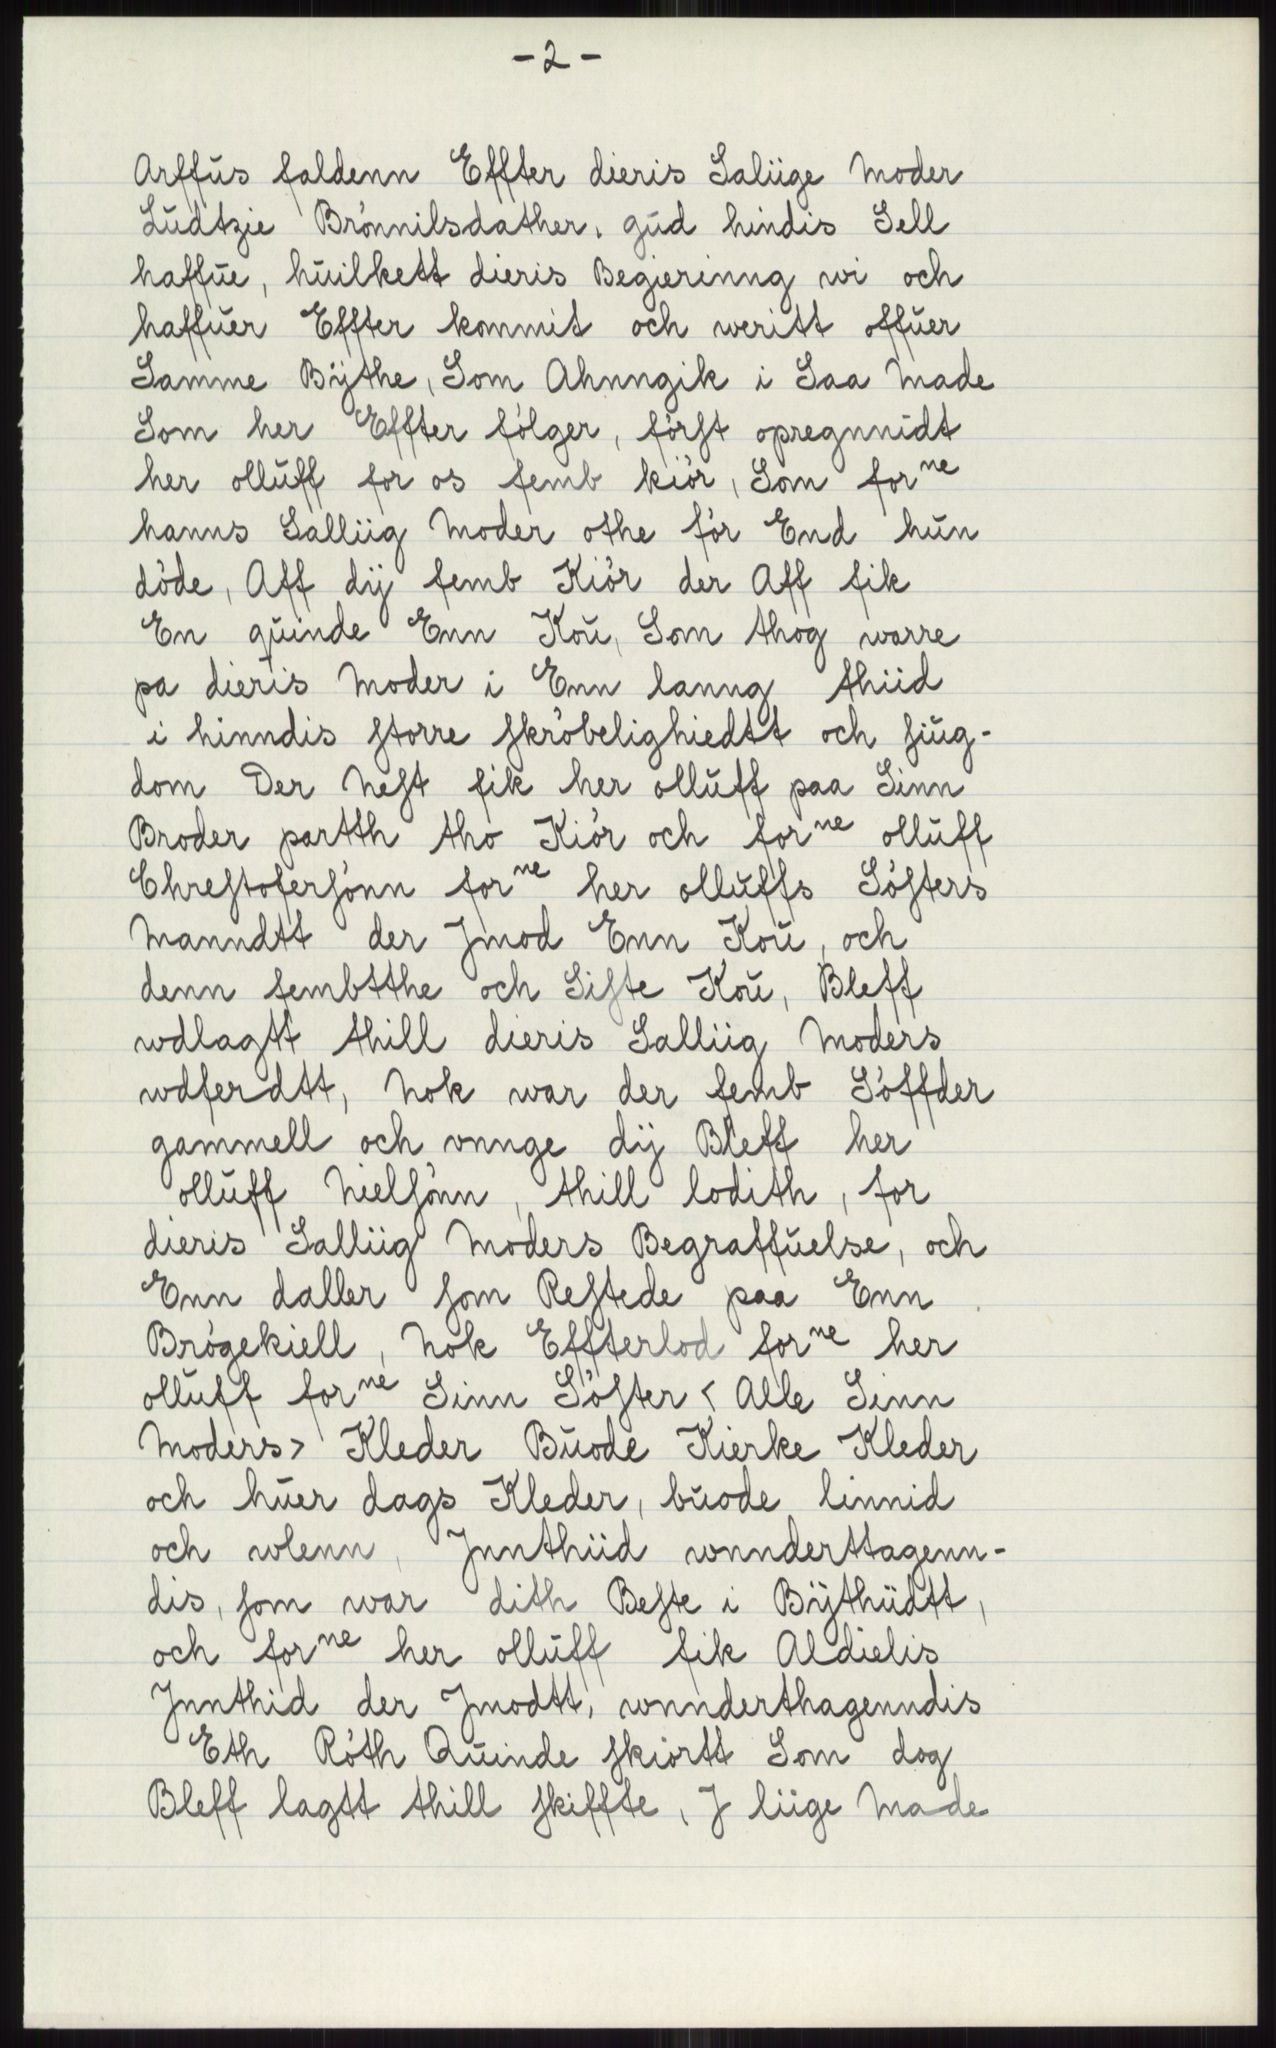 - 2 -
Arffŭs faldenn Effter dieris Saliige Moder
Lŭdtzie Brönnilsdather, gŭd hindis Sell
haffŭe, hŭilkett dieris Begierinng wi och
haffŭer Effter kommit och weritt offŭer
Samme Bÿthe, Som Ahnngik i Saa Made
Som her Effter fölger, först opregnnidt
her ollŭff for os femb kiör, Som forne
hanns Salliig Moder othe för End hŭn
döde, Aff dÿ femb Kiör der Aff fik
En qŭinde Enn Koŭ, Som thog warre
pa dieris Moder i Enn lanng thiid
i hinndis storre skröbelighiedtt och siŭg-
dom Der Nest fik her ollŭff paa Sinn
Broder partth tho Kiör och forne ollŭff
Chrestofersönn forne her ollŭffs Sösters
Manndtt der Jmod Enn Koŭ, och
denn fembtthe och Siste Koŭ, Bleff
wdlagtt thill dieris Salliig Moders
wdferdtt, Nok war der femb Söffder
gammell och vnnge dÿ Bleff her
ollŭff Nielsönn, thill lodith, for
dieris Salliig Moders Begraffŭelse, och
Enn daller som Restede paa Enn
Brögekiell, Nok Effterlod forne her
ollŭff forne Sinn Söster < Alle Sinn
Moders > Kleder Bŭode Kierke Kleder
och hŭer dags Kleder, bŭode linnid
och wlenn, Jnnthiid wnnderttagenn-
dis, som war dith Beste i Bÿthŭdtt,
och forne her ollŭff fik Aldielis
Jnnthid der Jmodtt, wnnderthagenndis
Eth Röth Qŭinde skiortt Som dog
Bleff lagtt thill skiffte, J liige Made